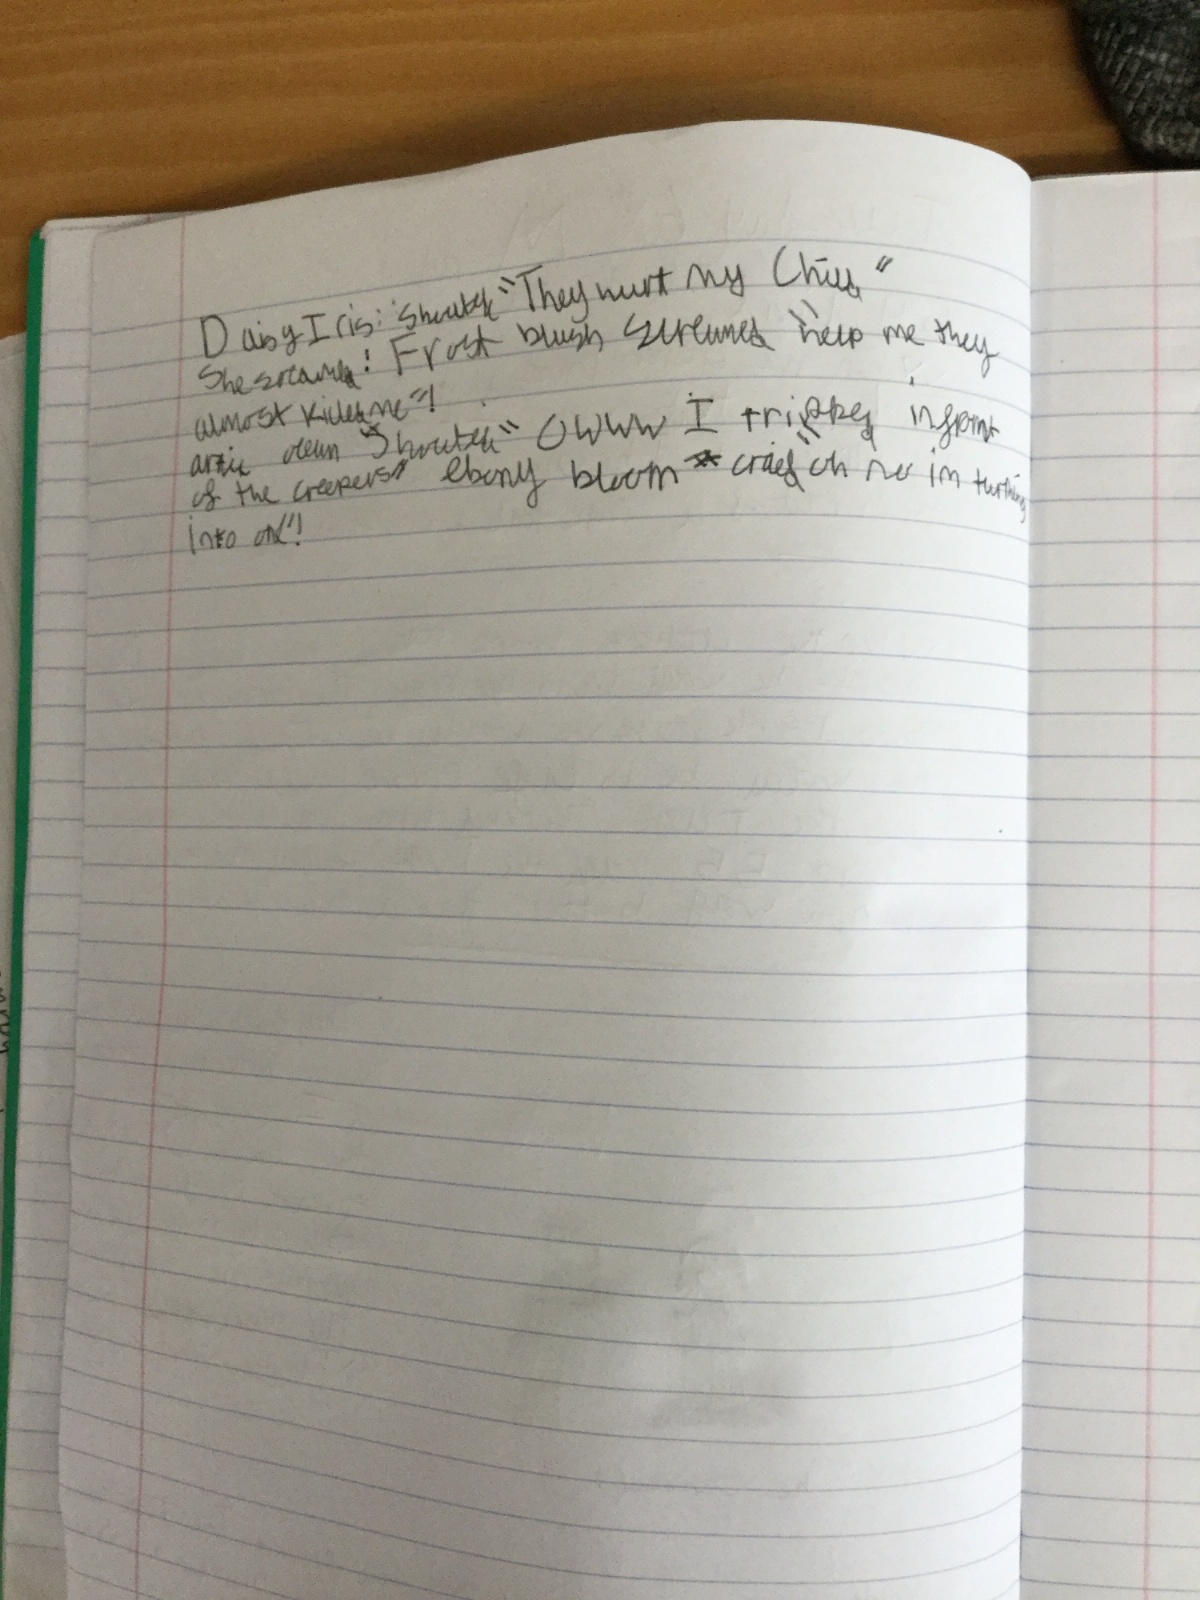 Daisy Iris: "Shouted" "They hurt my Child"
She screamed! Frost blush screamed "help me they
almost killed me"!
artic ocean "Shouted" OWWW I tripped infront
of the creepers" ebony bloom cried "oh no im turning
into one"!